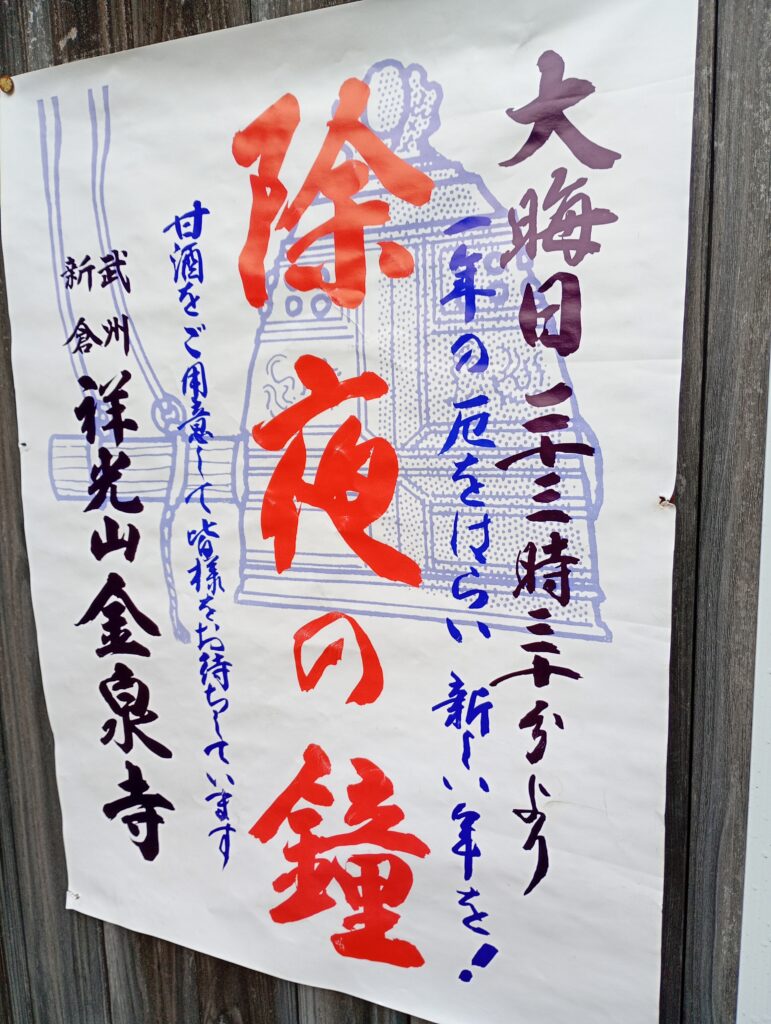 大晦日 二十三時三十分より
一年の厄をはらい 新しい年を!
除夜の鐘
甘酒をご用意して皆様をお待ちしています
武州
新倉
祥光山金泉寺